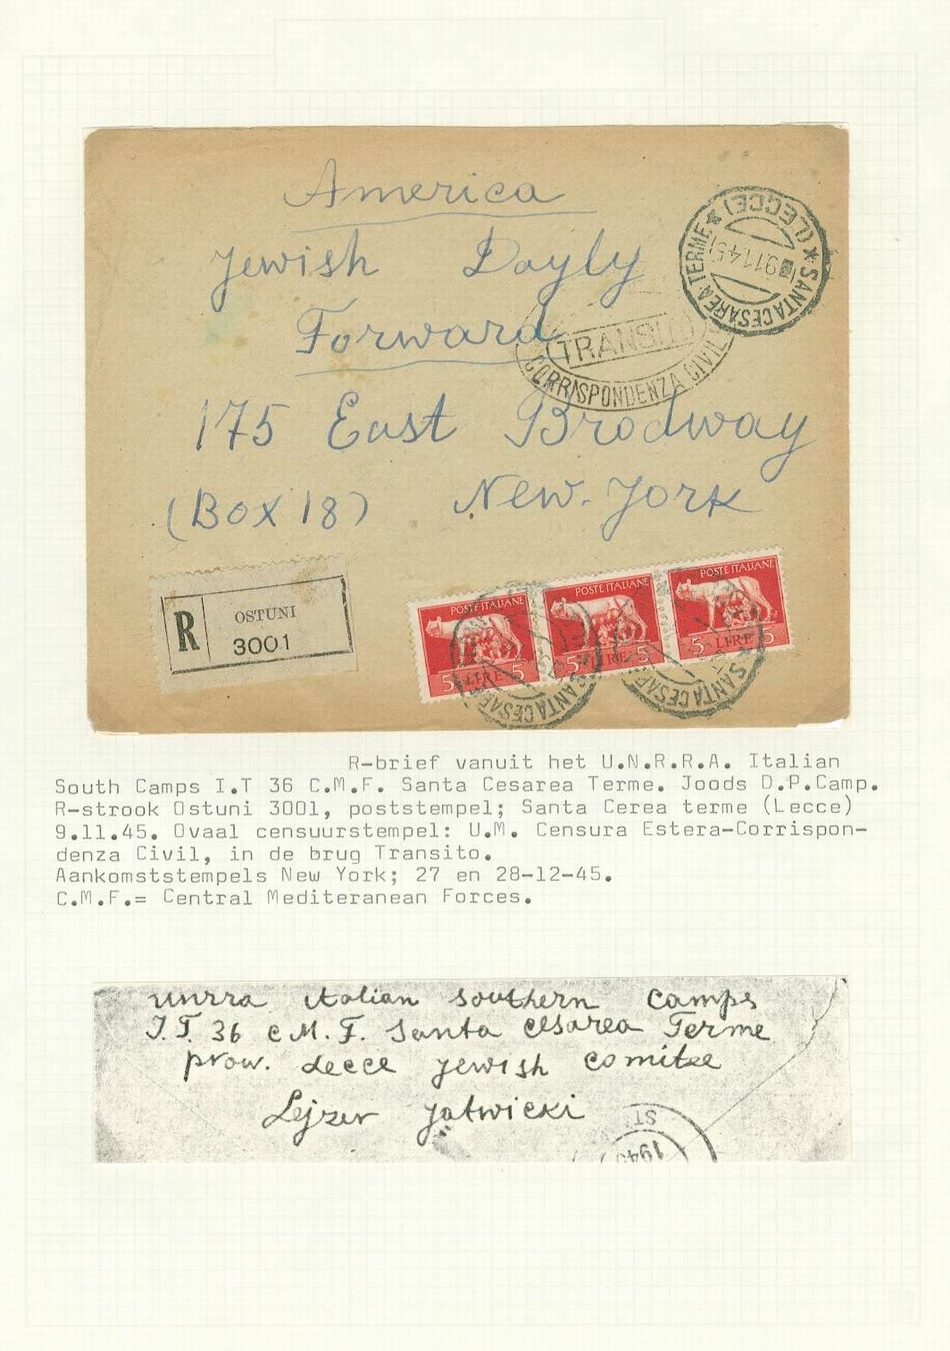 America
Jewish Dayly
Forward
175 East Brodway
(Box 18) New-York
(LECCE) * SANTA CESAREA TERME *
9.11.45
TRANSITO
CORRISPONDENZA CIVIL
R OSTUNI
3001
POSTE ITALIANE
5 LIRE 5
POSTE ITALIANE
5 LIRE 5
POSTE ITALIANE
5 LIRE 5
SANTA CESAREA
SANTA CESAREA
R-brief vanuit het U.N.R.R.A. Italian
South Camps I.T 36 C.M.F. Santa Cesarea Terme. Joods D.P.Camp.
R-strook Ostuni 3001, poststempel; Santa Cerea terme (Lecce)
9.11.45. Ovaal censuurstempel: U.M. Censura Estera-Corrispon-
denza Civil, in de brug Transito.
Aankomststempels New York; 27 en 28-12-45.
C.M.F.= Central Mediteranean Forces.
unrra italian southern camps
I.T. 36 C.M.F. Santa Cesarea Terme
prow. Lecce Jewish comitee
Lejzer Jatwicki
ST
194